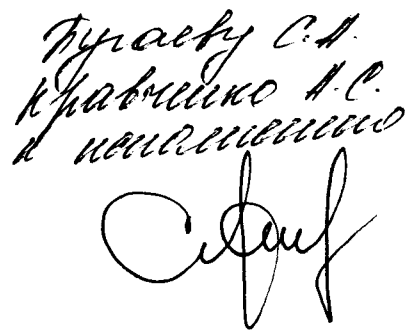 Бугаеву С.А.
Кравченко А.С.
к исполнению